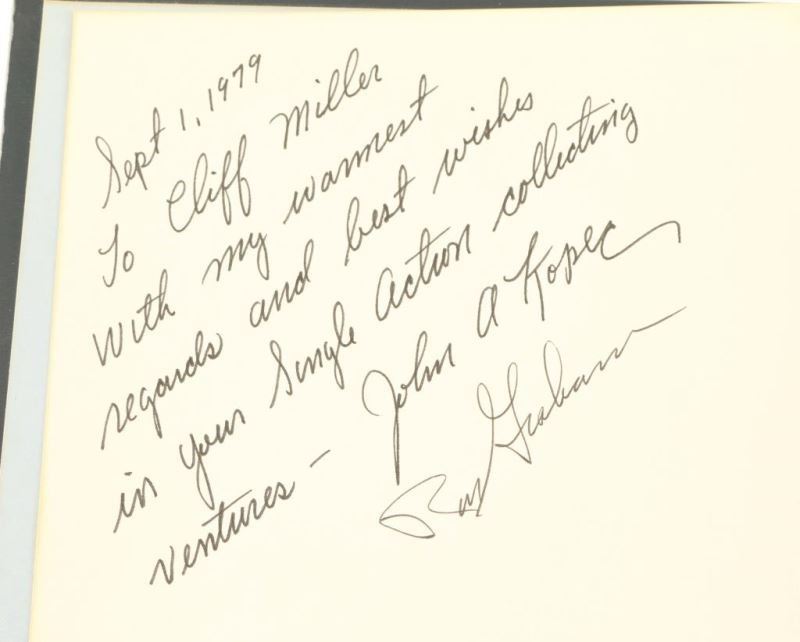 Sept 1, 1979
To Cliff Miller
With my warmest
regards and best wishes
in your Single Action collecting
ventures - John A Kopec
Ron Graham